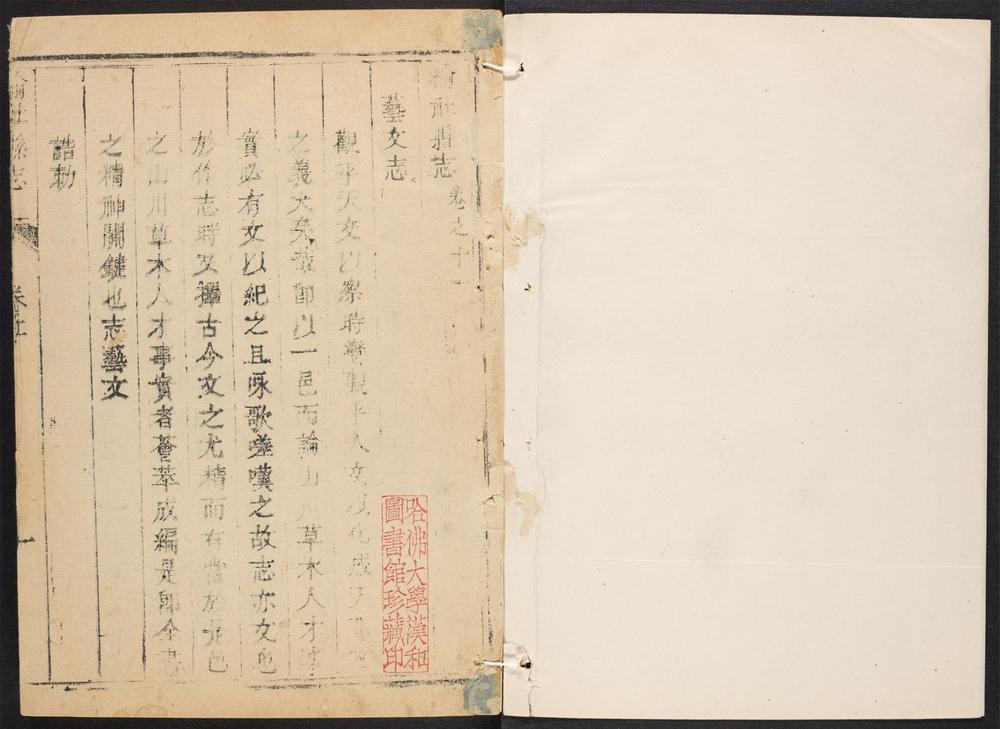 榆社縣志 卷之十一
藝文志
觀乎天文以察時變觀乎人文以化成天下文
之義大矣哉即以一邑而論山川草木人才事
實必有文以紀之且咏歌嗟嘆之故志亦文也
於作志時又擇古今文之尤精而有當於是邑
之山川草木人才事實者薈萃成編是即全書
之精神關鍵也志藝文
誥勅
榆社縣志
卷十一
一
哈佛大學漢和
圖書館珍藏印